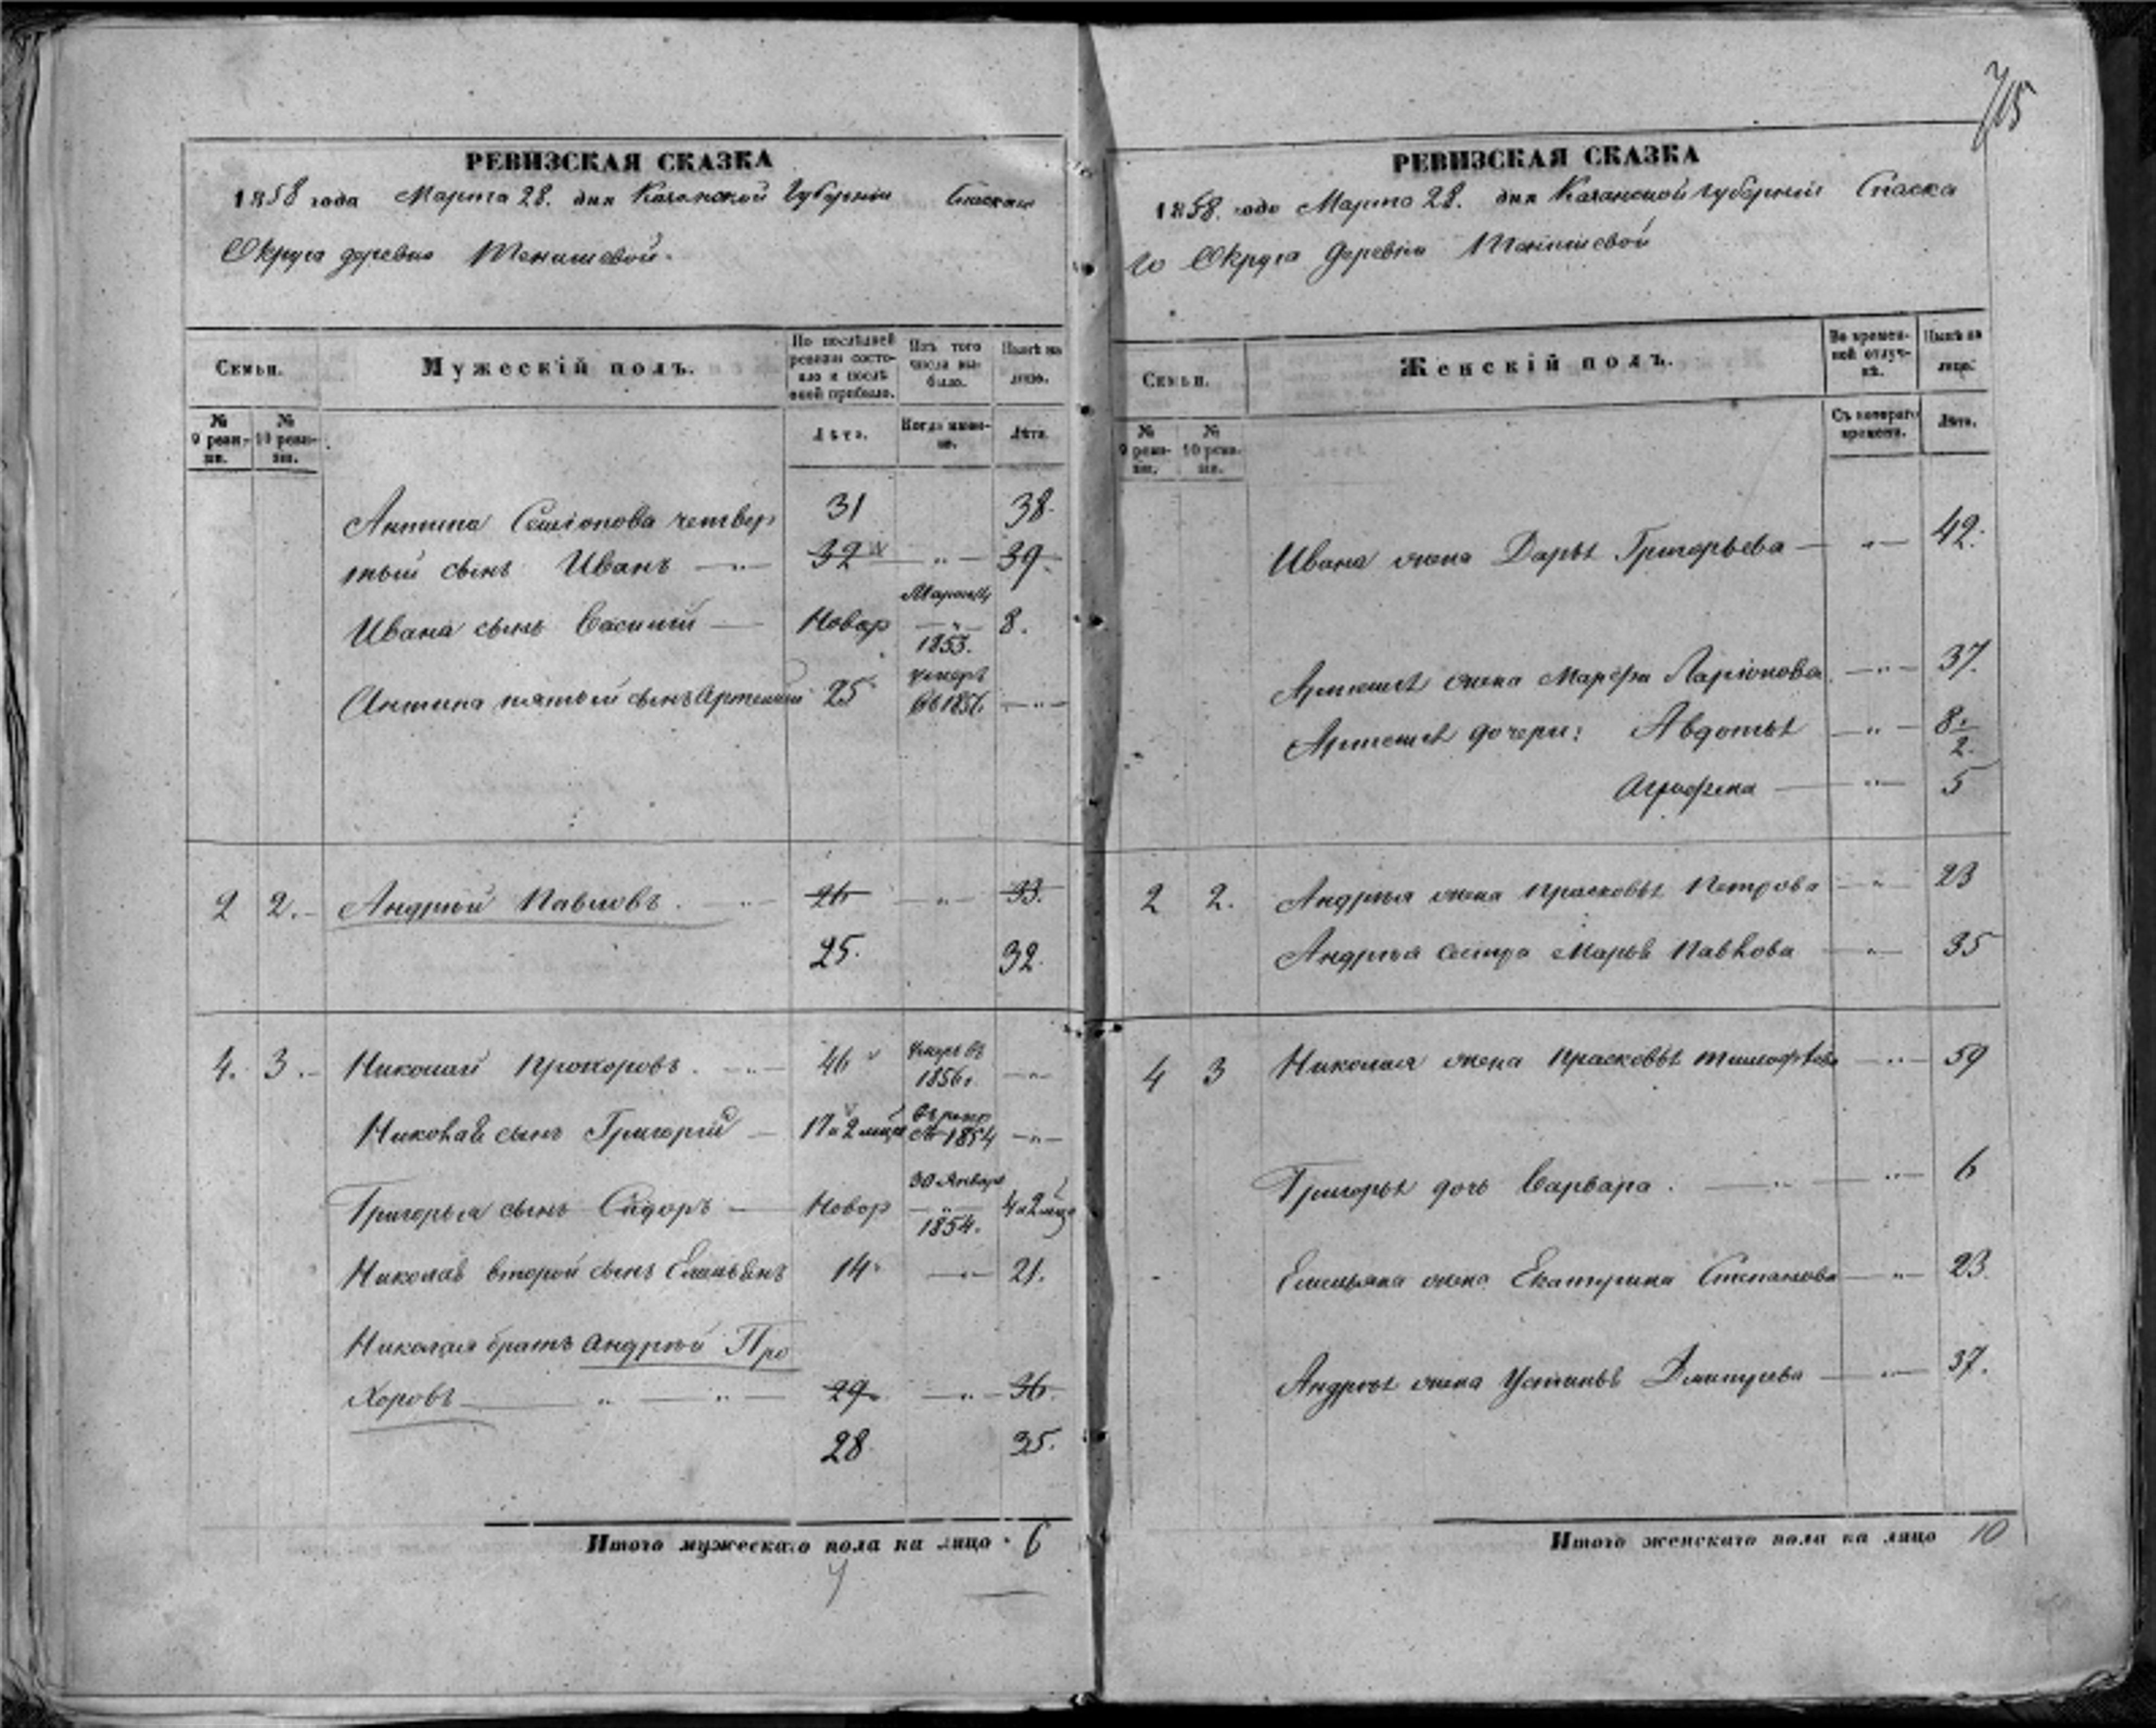 715
РЕВИЗСКАЯ СКАЗКА
1858 года Марта 28. дня Казанской Губернии Спаскаго
Округа деревни Тенишевой.
Семьи.
Мужескій полъ.
По послѣдней ревизіи состояло и послѣ оной прибыло.
Изъ того числа выбыло.
Нынѣ на лицо.
№ 9 ревизіи.
№ 10 ревизіи.
Лѣта.
Когда именно.
Лѣта.
Антипа Семіонова четвер 31 38.
тый сынъ Иванъ — " — 32 — " — 39.
Ивана сынъ Василій — Новор 1853. 8.
Антипа пятый сынъ Артемий 25 умеръ въ 185 — " —
2 2. Андрей Павловъ. — " — 26 — " — 33.
25. 32.
4. 3. Николай Прохоровъ. — " — 46 умеръ въ 1856г. — " —
Николая сынъ Григорій — 17 и 2 мца въ рекр 1854 — " —
Григорья сынъ Сидоръ — Новор 30 Января 1854. 4 и 2 мца
Николая второй сынъ Емельянъ 14. — " — 21.
Николая братъ Андрей Про
хоровъ — " — " — 29. — " — 36.
28 35.
Итого мужескаго пола на лицо 6
РЕВИЗСКАЯ СКАЗКА
1858. года Марта 28. дня Казанской Губерніи Спаска
го Округа Деревни Тенишевой
Семьи.
Женскій полъ.
Во временной отлучкѣ.
Нынѣ на лицо.
№ 9 ревизіи.
№ 10 ревизіи.
Съ котораго времени.
Лѣта.
Ивана жена Дарья Григорьева — " — 42.
Артемья жена Марфа Ларіонова — " — 37.
Артемья дочери: Авдотья — " — 8. 2.
Аграфена — " — 5
2 2. Андрея жена Прасковья Петрова — " — 23
Андрея сестра Марья Павлова — " — 35
4 3 Николая жена Прасковья Тимофѣева — " — 59
Григорья дочь Варвара. — " — " — 6
Емельяна жена Екатерина Степанова — " — 23.
Андрея жена Устинья Дмитріева — " — 37.
Итого женскаго пола на лицо 10